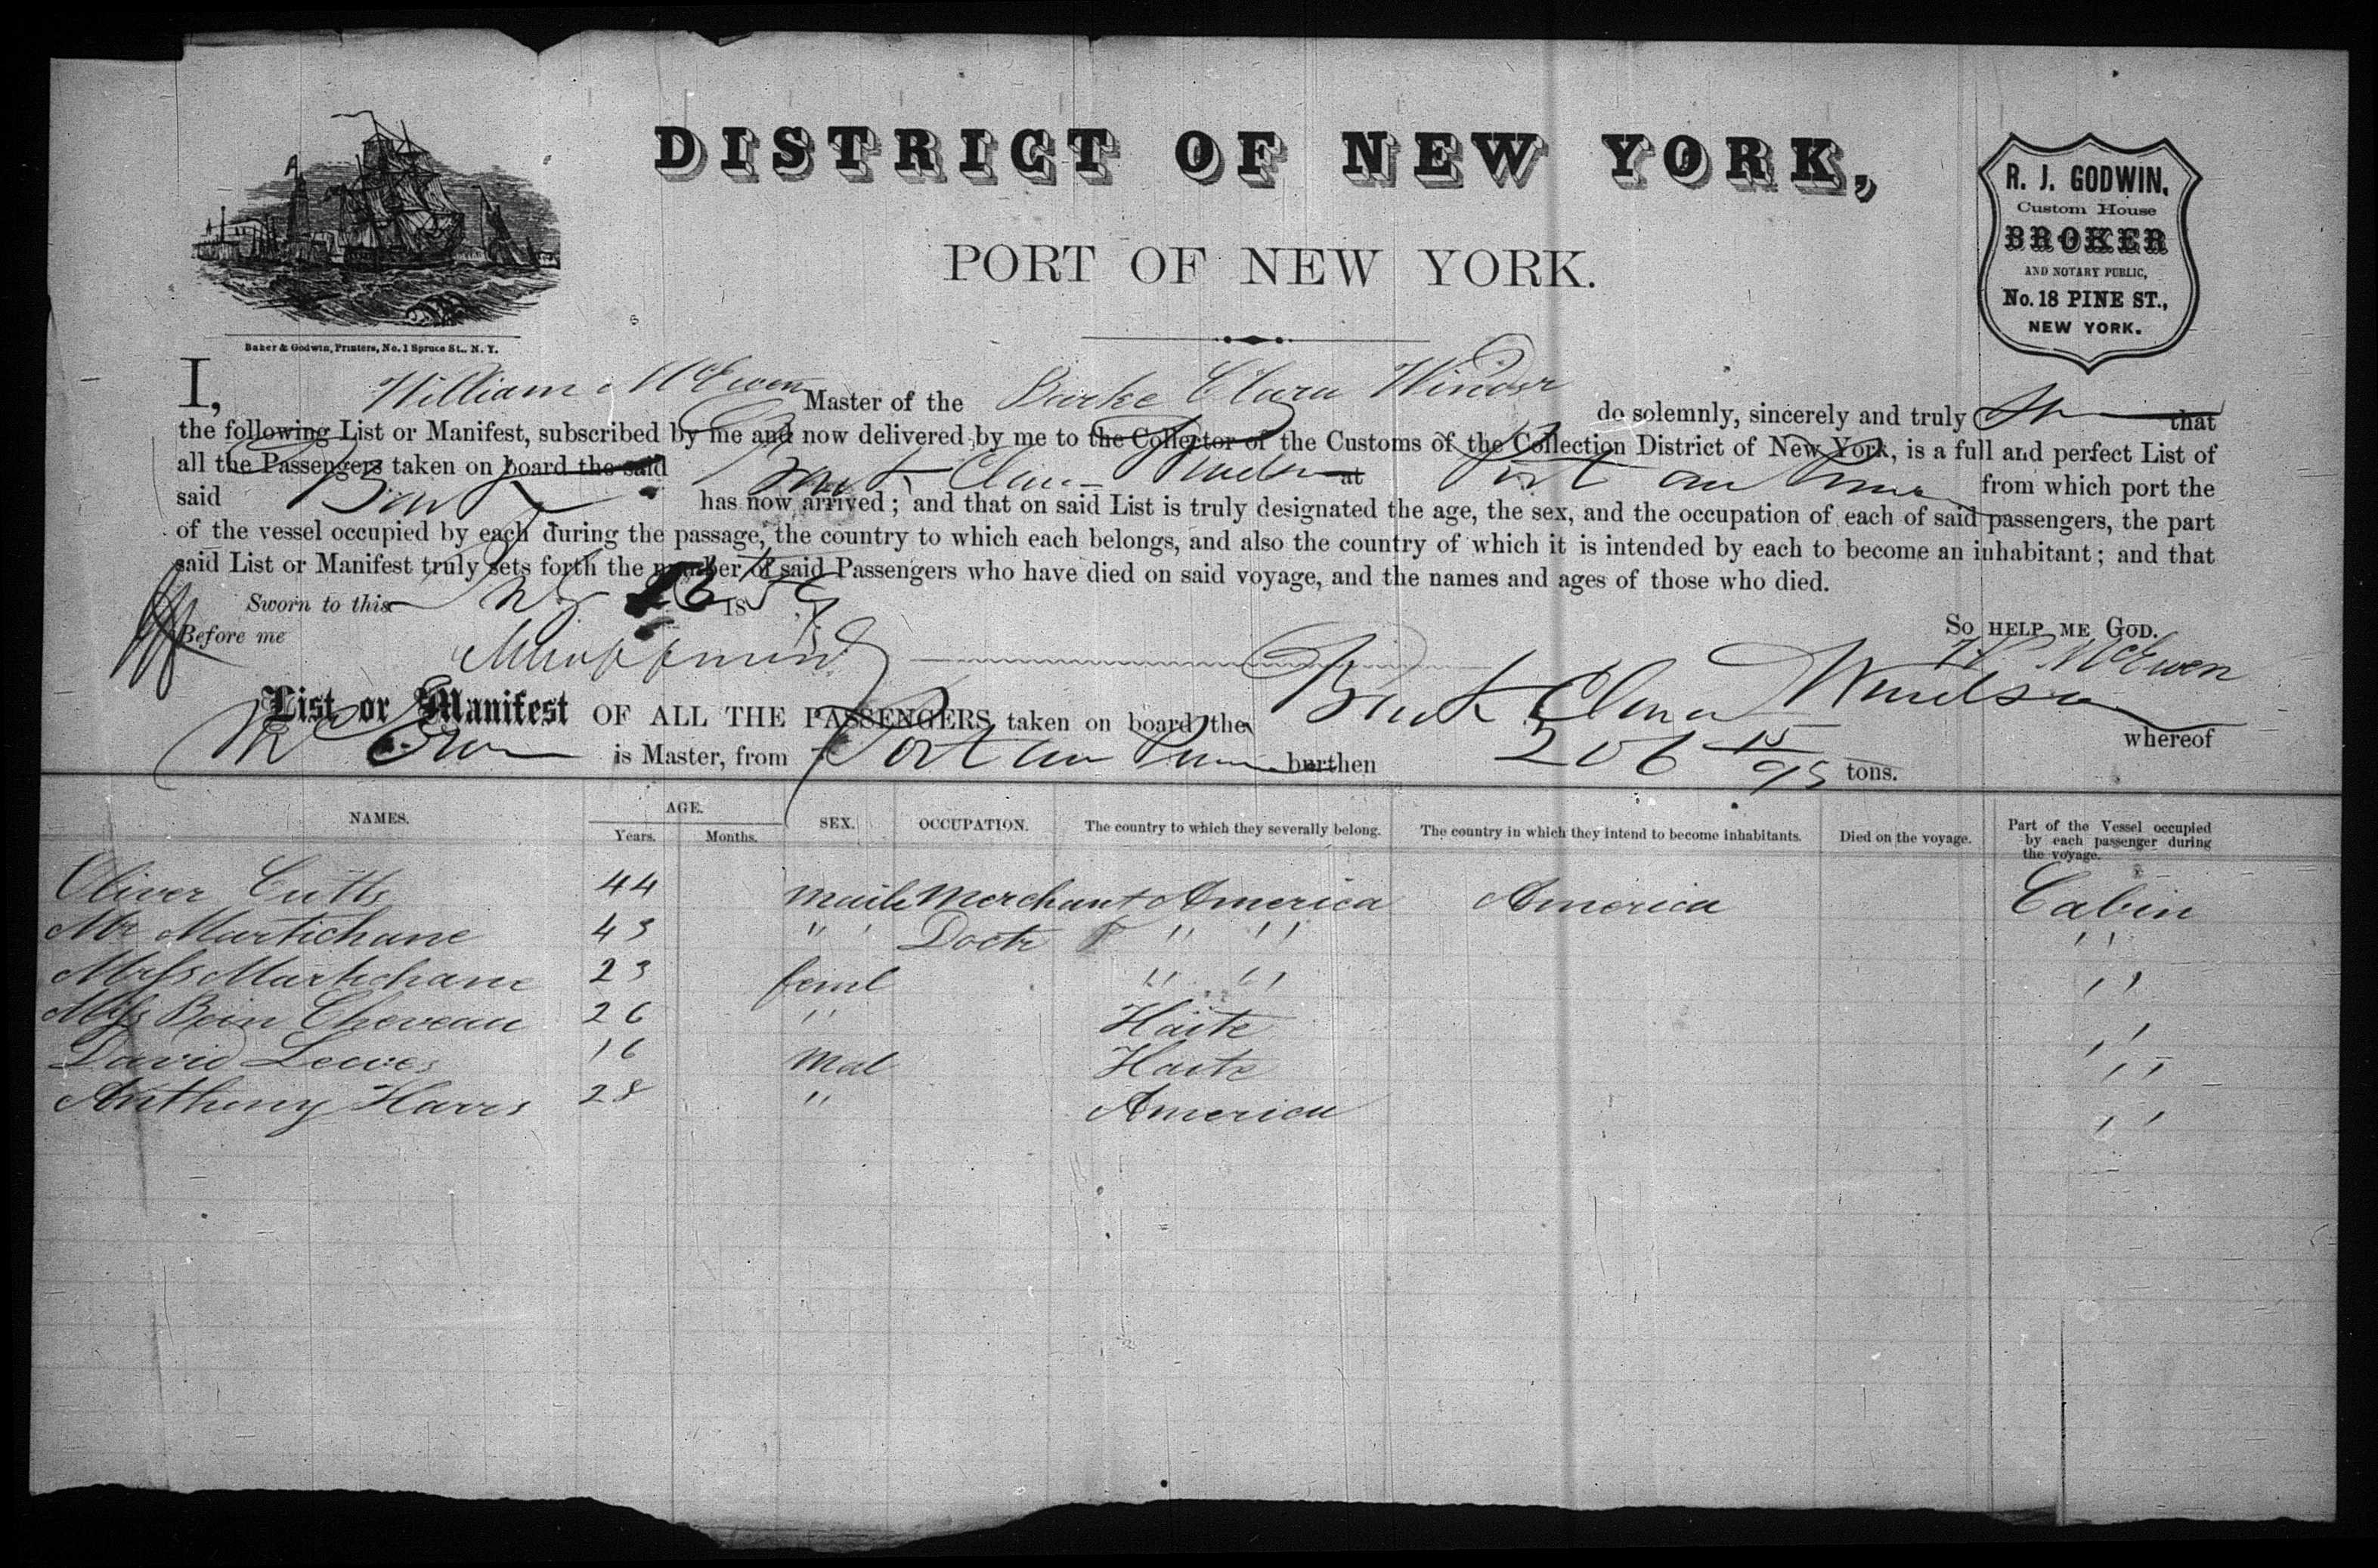 DISTRICT OF NEW YORK,
PORT OF NEW YORK.
R. J. GODWIN,
Custom House
BROKER
AND NOTARY PUBLIC,
No. 18 PINE ST.,
NEW YORK.
Baker & Godwin, Printers, No. 1 Spruce St., N. Y.
I, William McEwen Master of the Barke Clara Windsr do solemnly, sincerely and truly that
the following List or Manifest, subscribed by me and now delivered by me to the Collector of the Customs of the Collection District of New York, is a full and perfect List of
all the Passengers taken on board the said at Port au from which port the
said Bark has now arrived; and that on said List is truly designated the age, the sex, and the occupation of each of said passengers, the part
of the vessel occupied by each during the passage, the country to which each belongs, and also the country of which it is intended by each to become an inhabitant; and that
said List or Manifest truly sets forth the number of said Passengers who have died on said voyage, and the names and ages of those who died.
Sworn to this 18
Before me
So HELP ME GOD.
McEwen
List or Manifest OF ALL THE PASSENGERS taken on board the Bark Clara whereof
is Master, from Port au burthen 206 15/95 tons.
NAMES. AGE. Years. Months. SEX. OCCUPATION. The country to which they severally belong. The country in which they intend to become inhabitants. Died on the voyage. Part of the Vessel occupied by each passenger during the voyage.
Oliver Cutts 44 Male Merchant America America Cabin
Mr Martichane 43 " Doctr " " " "
Mrss Martichane 23 feml " " " "
Miss Bein Cheveau 26 " Haite " "
David Lewes 16 Mal Haite " "
Anthony Harrs 28 " America " "